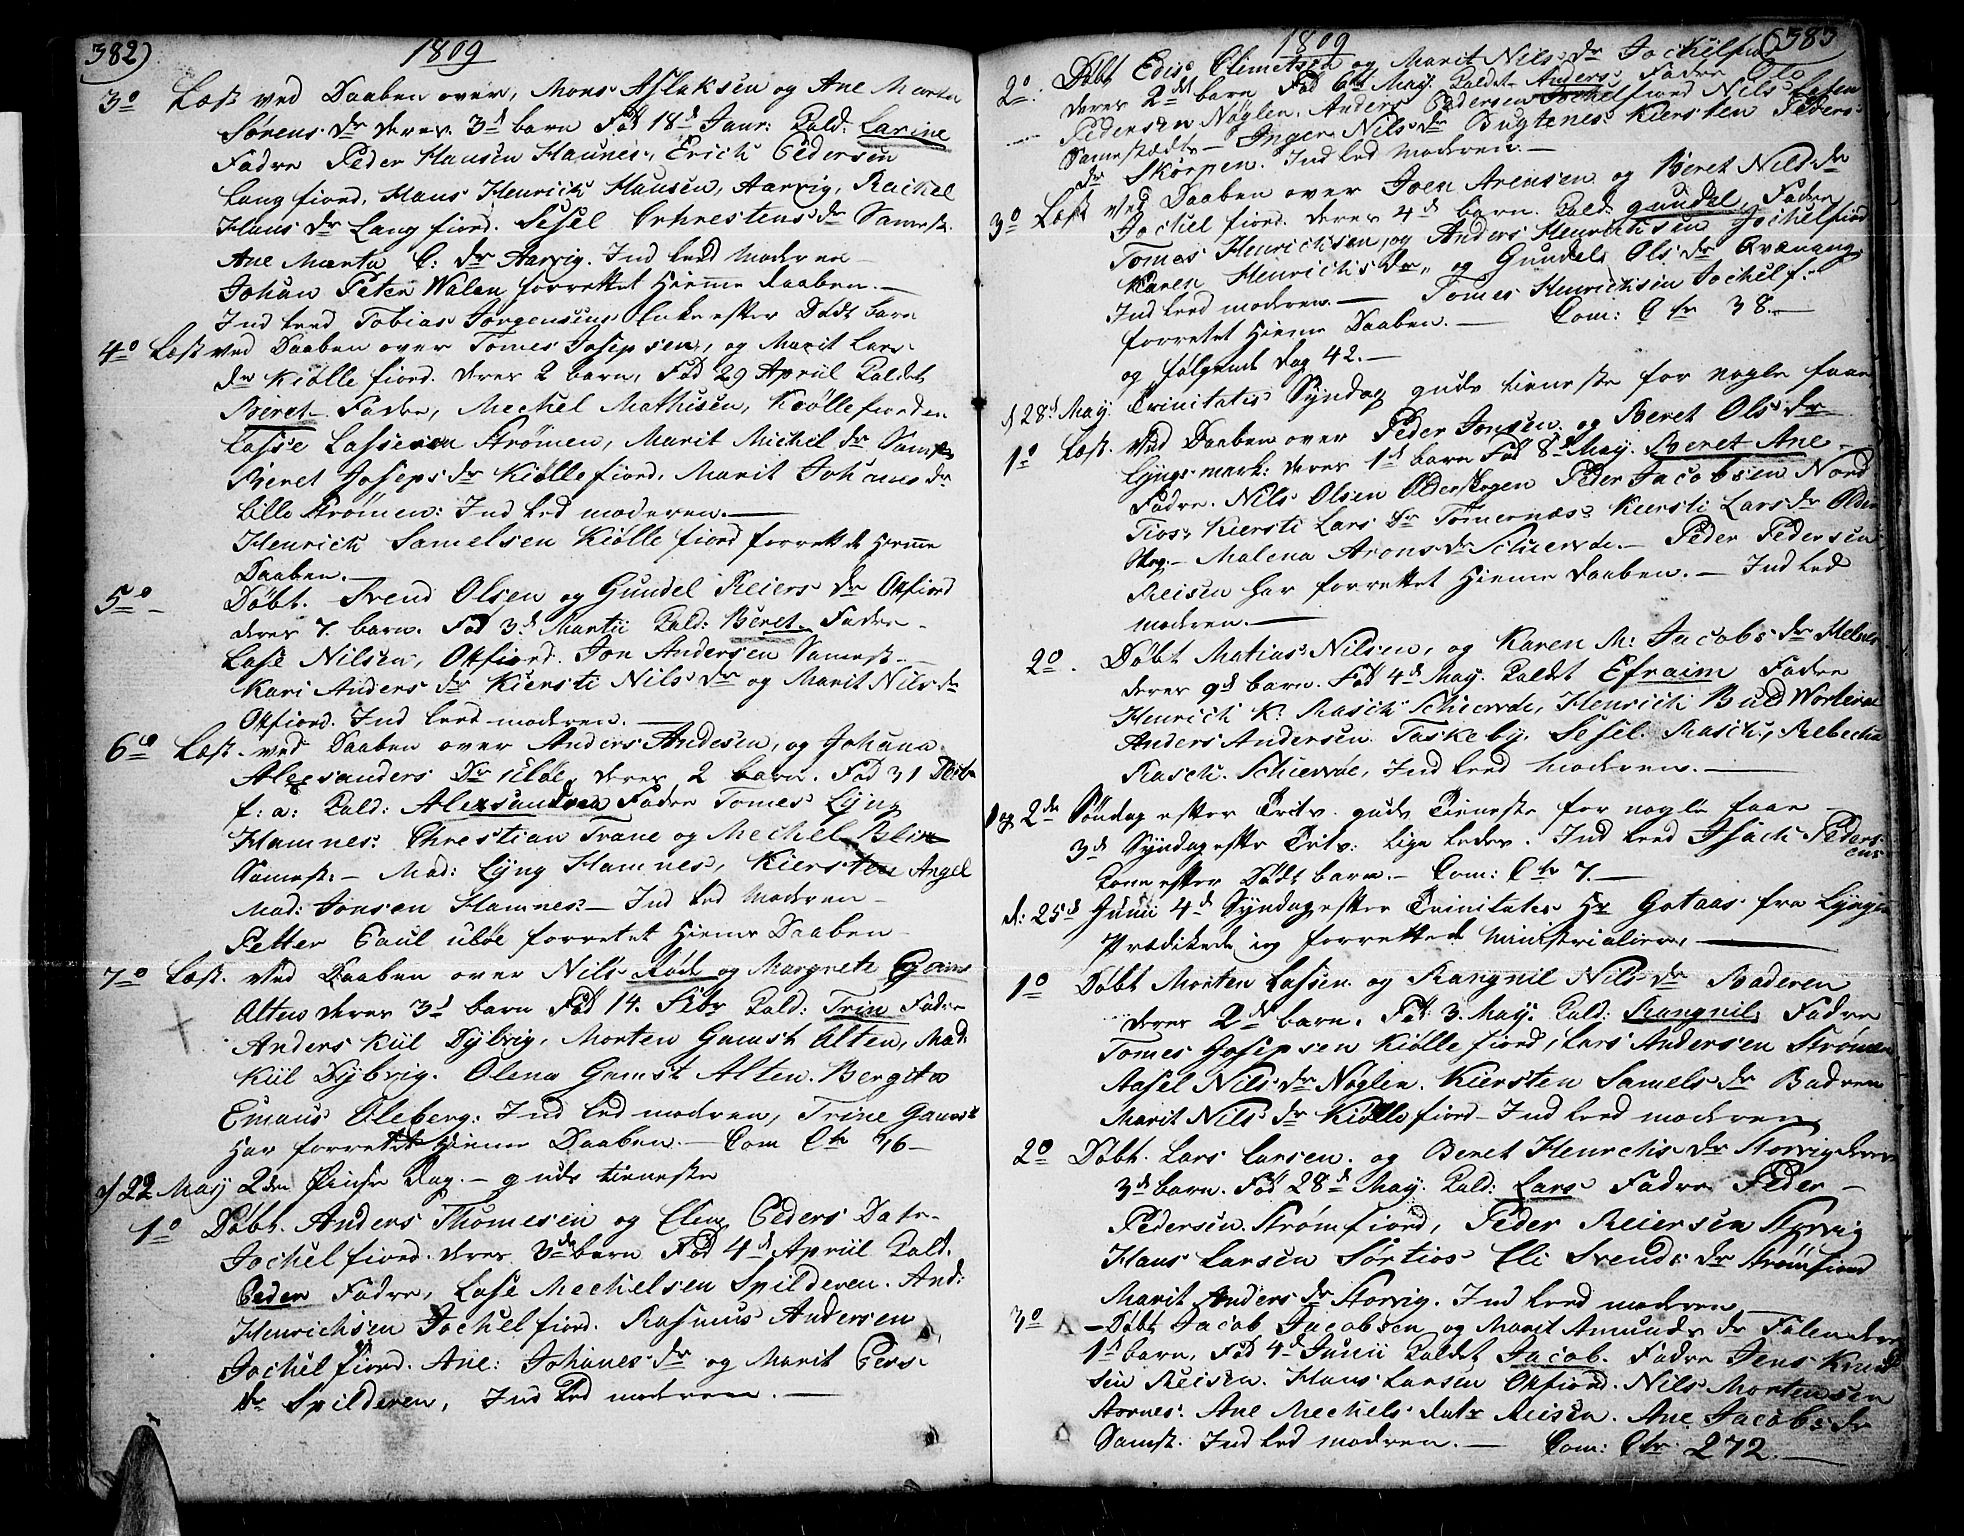 382)
1809
3º Læst ved Daaben over, Mons Aslaksen og Ane Marta
Sørens dr deres 3d barn Fød 18d Janr: Kald: Larine
Fadre Peder Hansen Haunes, Erich Pedersen
Langfiord, Hans Henrich Hansen, Aarvig, Rachel
Hans dr Langfiord. Sesel Chrestens dr Samest.
Ane Marta C: dr Aarvig. Ind led Moderen
Johan Peter Walen forrettet Hieme daaben.—
Ind leed Tobias Jørgensens Enke efter Død barn
4º Læst ved Daaben over Tomes Josepsen, og Marit Lars
dr Kiøllefiord. deres 2 barn, Fød 29 Apriil Kaldet
Beret Fadre, Mechel Mathisen, Kiøllefiorden
Lasse Lassesen Strømen, Marit Michel dr Samst
Beret Joseps dr Kiøllefiord, Marit Johanes dr
Lille Strømen: Ind led moderen.—
Henrich Samelsen Kiøllefiord forrettede Hieme
Daaben.—
5º Døbt. Svend Olsen og Gundel Reiers dr Oxfiord
deres 7. barn. Fød 3d Martii Kald: Beret. Fadre
Lase Nilsen, Oxfiord. Jon Andersen Samest.—
Kari Anders dr Kiersti Nils dr og Marit Nils dr
Oxfiord. Ind leed moderen.—
6º Læst ved Daaben over Anders Andesen, og Johana
Alexsanders dr Uløe, deres 2 barn. Fød 31 Decbr
f: a: Kald: Alexsandrea Fadre Tomes Lyng
Hamnes: Chrestian Trane og Mechel Blix
Samest:— Mad: Lyng Hamnes, Kiersten Angel
Mad: Jonsen Hamnes:— Ind led Moderen—
Petter Paul Uløe forrettet Hieme Daaben—
7º Læst. ved Daaben over Nils Rød og Margrete
Alten deres 3d barn Fød 14. Febr Kald: Trin Fadre
Anders Kiil Dybvig, Morten Gamst Alten, Mad.
Kiil Dybvig. Olena Gamst Alten. Bergita
Emaus Oleberg: Ind led moderen, Trine Gamst
Har forrettet Hieme Daaben.— Com Ctr 716—
d 22 May 2den Pinse Dag.— guds tieneste
1º Døbt. Anders Thomesen og Elen Peders Datr.
Jochelfiord. deres 3de barn Fød 4d Apriil Kald.
Peder Fadre, Lase Mechelsen Spilderen. And:
Henrichsen Jochelfiord. Rasmus Andersen
Jochelfiord. Ane: Johanes dr og Marit Pers
dr Spilderen, Ind led moderen.—
1809
(383
2º: Døbt Edis Climetsen og Marit Nils dr Jochelfiord
deres 2det barn Fød 6te May. Kaldet Anders. Fadre Ole
Pedersen Nøglen. Anders Pedersen Jochelfiord Nils Lasen
Samestædts— Inger Nils dr Bugtenes Kiersten Peders
dr Skorpen. Ind led Moderen.—
3º Læst ved Daaben over Joen Arensen og Beret Nils dr
Jochelfiord. deres 4d barn. Kald: gundel, Fadre
Tomes Henrichsen, og Anders Henrichsen Jochelfiord
Karen Henrichs dr, og Gundele Ols dr Qvænang.
Ind led moderen.— Tomes Henrichsen Jochelf:
forrettet Hieme Daaben.— Com: C tr 38.—
og følgende dag 42.—
d 28d May. Trinitatis Syndag guds tieneste for nogle faae
1º Læst. ved Daaben over Peder Jonsen og Beret Ols dr
Lyngsmark: deres 1d barn Fød 8d May. Beret Ane—
Fadre. Nils Olsen Olderskogen Peder Jacobsen Nord
Tios: Kiersti Lars dr Tømernæs: Kiersti Lars dr Older
Skog:— Malena Arons dr Schierøe.— Peder Pedersen
Reisen har forrettet Hieme daaben.— Ind led
moderen.—
2º. Døbt Matias Nilsen, og Karen M: Jacobs dr Melnes
deres 9d barn. Fød 4d May. Kaldet Efraim Fadre
Henrich K: Rasch Schierøe, Henrich Bull Worterøe
Anders Andersen. Taskeby, Sesel. Rasch, Rebecha
Rasch. Schierøe, Ind leed Moderen.—
1 og 2de Søndag efter Tritv. guds Tieneste for nogle faae—
3d Syndag efter Tritv: lige ledes. Ind leed Isach Peders
ens
Kone efter Død barn.— Com: Ctr 7.—
d: 25d Junii 4d Syndag efter Trinitatis Hr Gotaas fra Lyngen
Prædikede og forrettede Ministrialier.—
1º Døbt Morten Lassen og Rangnil Nils dr Baderen
deres 2d barn. Fød 3. May. Kald: Rangnil. Fadre
Tomes Josepsen Kiøllefiord, Lars Andersen Strømen
Aasel Nils dr Nøglen. Kiersten Samels dr Badren
Marit Nils dr Kiøllefiord— Ind leed moderen
2º Døbt. Lars Larsen. og Beret Henrichs dr Storvig deres
3d barn. Fød 28d May. Kald: Lars Fadre Peder—
Pedersen Strømfiord, Peder Reiersen Storvig
Hans Larsen Sørtios Eli Svends dr Strømfiord
Marit Anders dr Storvig. Ind leed moderen
3º —Døbt Jacob Jacobsen og Marit Amunds dr Falen deres
1d barn, Fød 4d Junii Kaldet Jacob. Fadre Jens Knud
sen Reisen. Hans Larsen Oxfiord. Nils Mortensen
Aarnes: Ane Mechels datr Reisen. Ane Jacobs dr
Samst. Ind led moderen.— Com: Ctr. 272.—